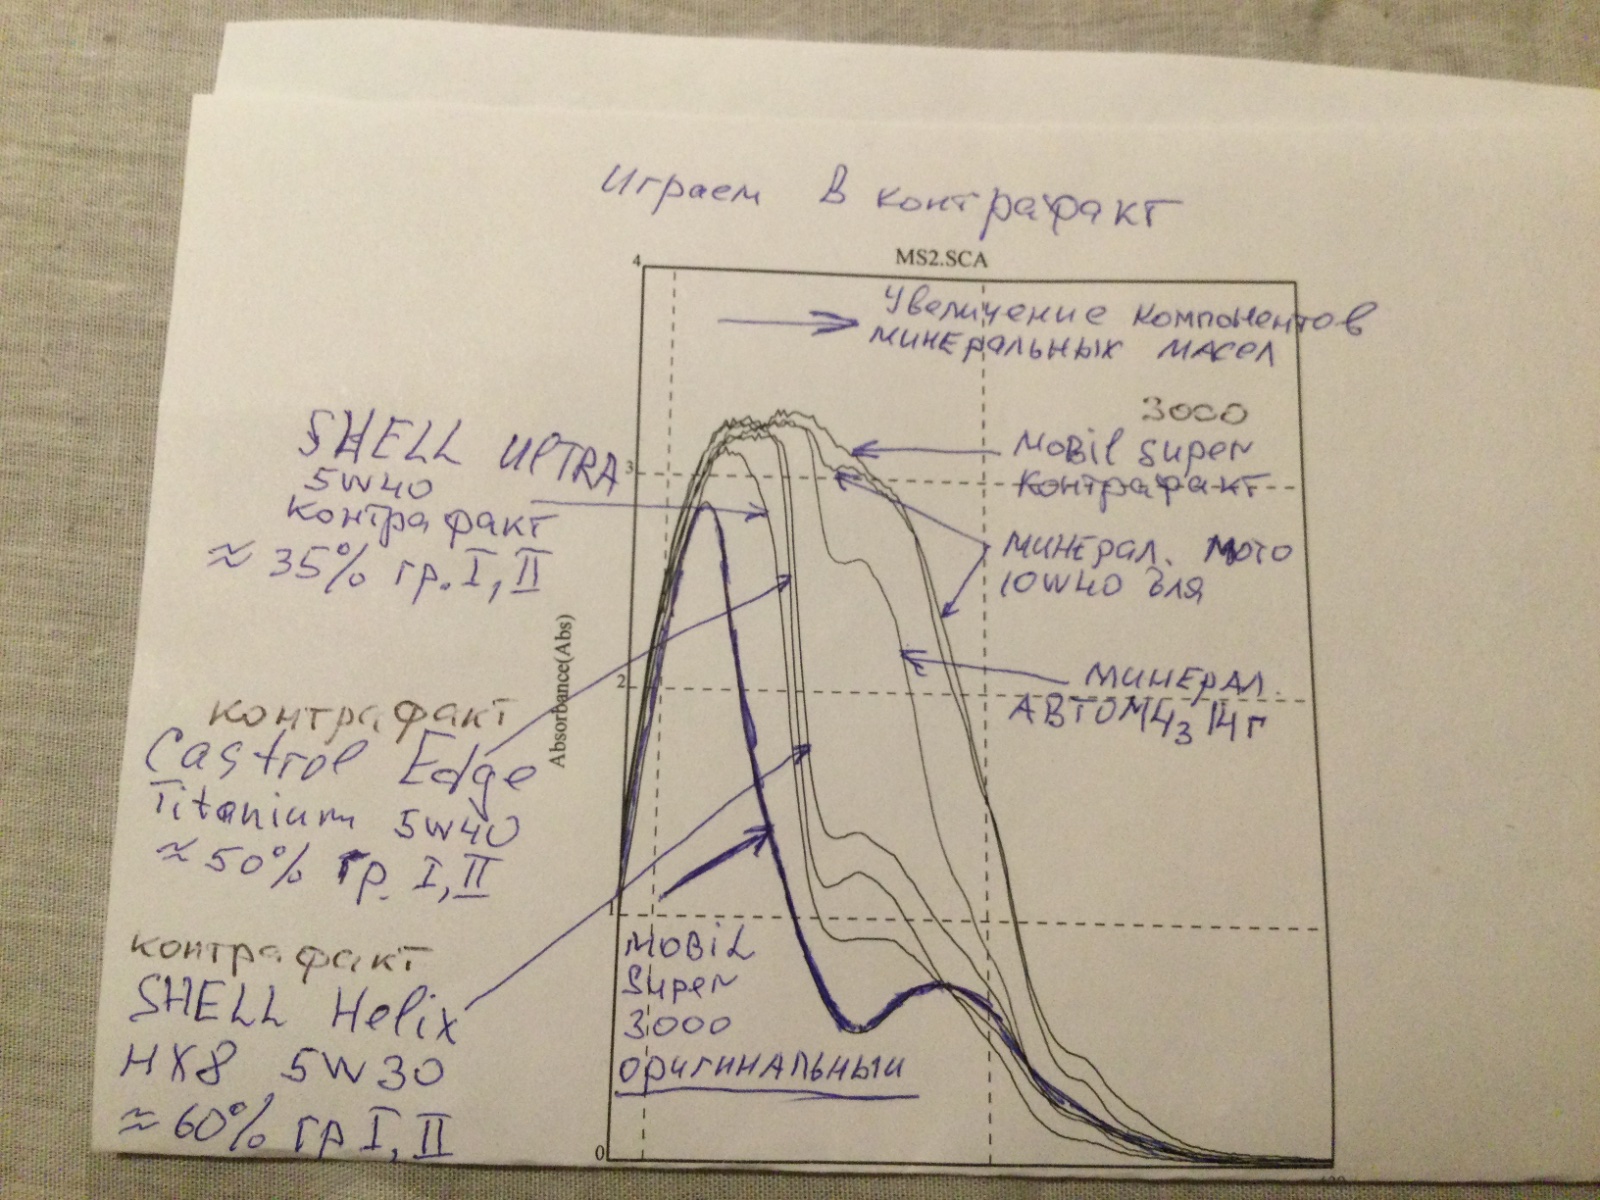 Играем в контрафакт
MS2.SCA
4
Увеличение компонентов
минеральных масел
3000
Mobil Super
контрафакт
SHELL UlTRA
5W40
контрафакт
≈ 35% гр. I, II
3
минерал. мото
10W40 для
Absorbance(Abs)
2
минерал.
контрафакт
Castrol Edge
Titanium 5W40
≈ 50% гр. I, II
1
контрафакт
SHELL Helix
HX8 5W30
≈ 60% гр I, II
MOBIL
Super
3000
оригинальный
0